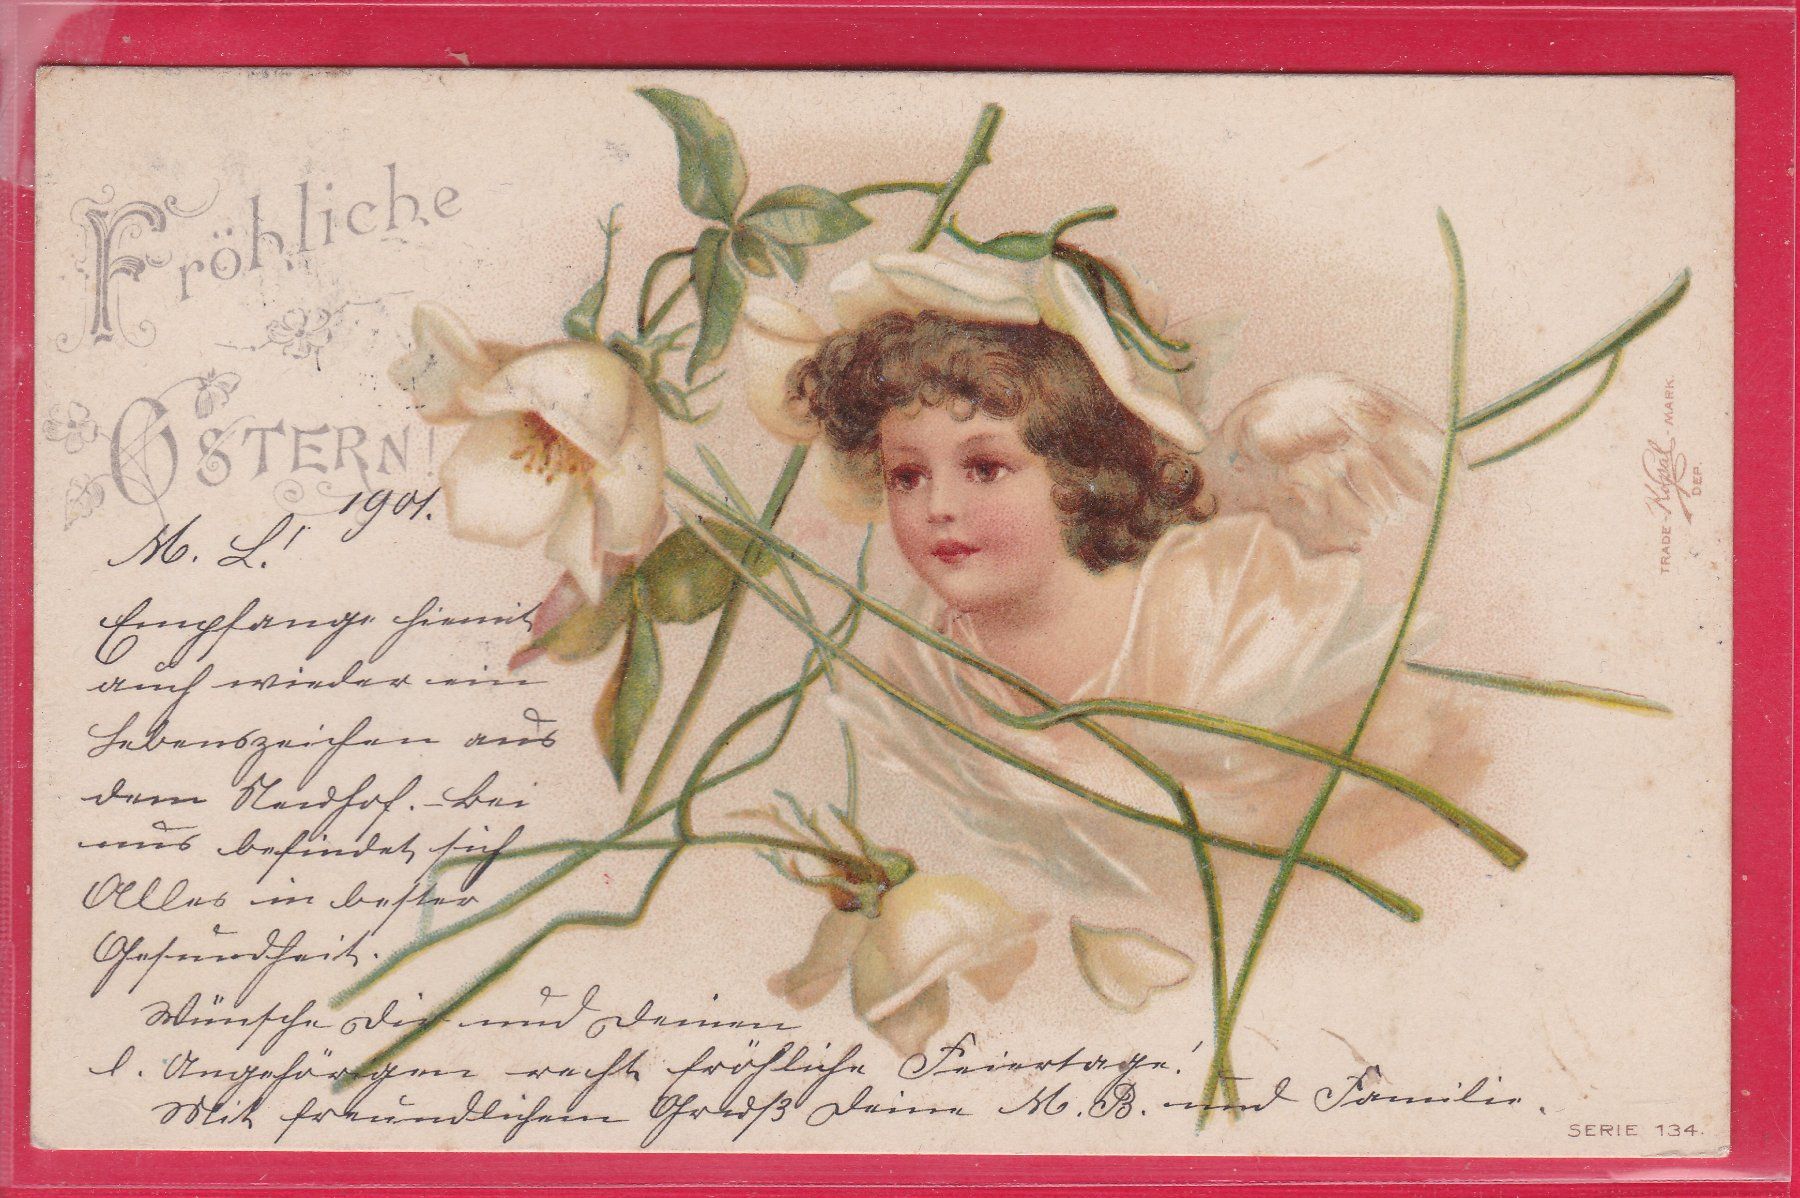 Fröhliche
Ostern!
1901.
M. L.!
Empfange hiemit
auch wieder ein
Lebenszeichen aus
dem Neuhof. – Bei
uns befindet sich
Alles in bester
Gesundheit.
Wünsche Dir und Deinen
l. Angehörigen recht fröhliche Feiertage!
Mit freundlichem Gruß Deine M. B. und Familie.
TRADE - Kopal - MARK.
DEP.
SERIE 134.